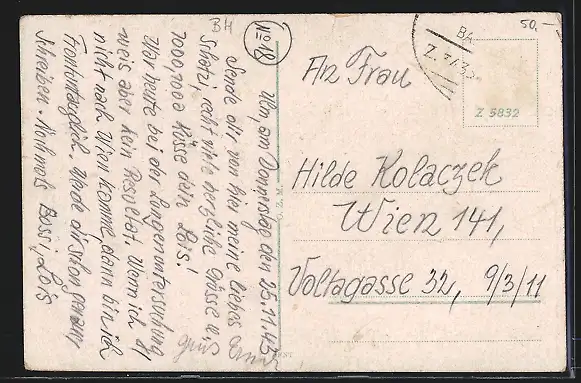 50.-
BH
VIII 18
BA
Z. 7/33
Z 5832
Ulm, am Donnerstag den 25.11.43
Sende dir von hier meine liebes
Schatzi, recht viele herzliche Grüsse u.
1000 1000 Küsse dein Lois!
War heute bei der Lungenuntersuchung
weis aber kein Resultat. Wenn ich
nicht nach Wien komme dann bin ich
Fronturlaublich. Werde dir schon genauer
Schreiben. Nochmals Bussi, Lois
An Frau
Hilde Kolaczek
Wien 141,
Voltagasse 32, 9/3/11